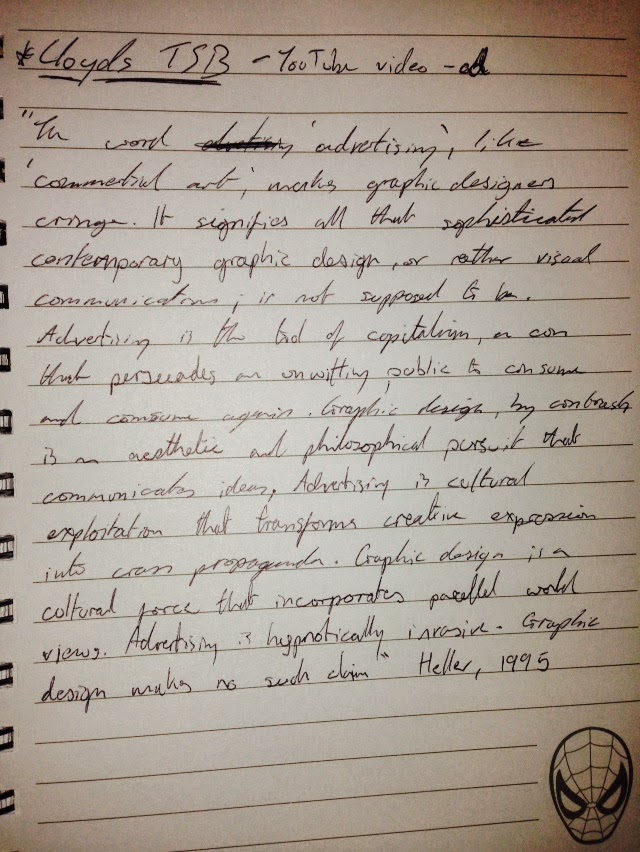 *Lloyds TSB - YouTube video - ad
"The word 'advertising', like
'commercial art', makes graphic designers
cringe. It signifies all that sophisticated
contemporary graphic design, or rather visual
communications, is not supposed to be.
Advertising is the tool of capitalism, a con
that persuades an unwitting public to consume
and consume again. Graphic design, by contrast
is an aesthetic and philosophical pursuit that
communicates ideas. Advertising is cultural
exploitation that transforms creative expression
into crass propaganda. Graphic design is a
cultural force that incorporates parallel world
views. Advertising is hypnotically invasive. Graphic
design makes no such claim" Heller, 1995